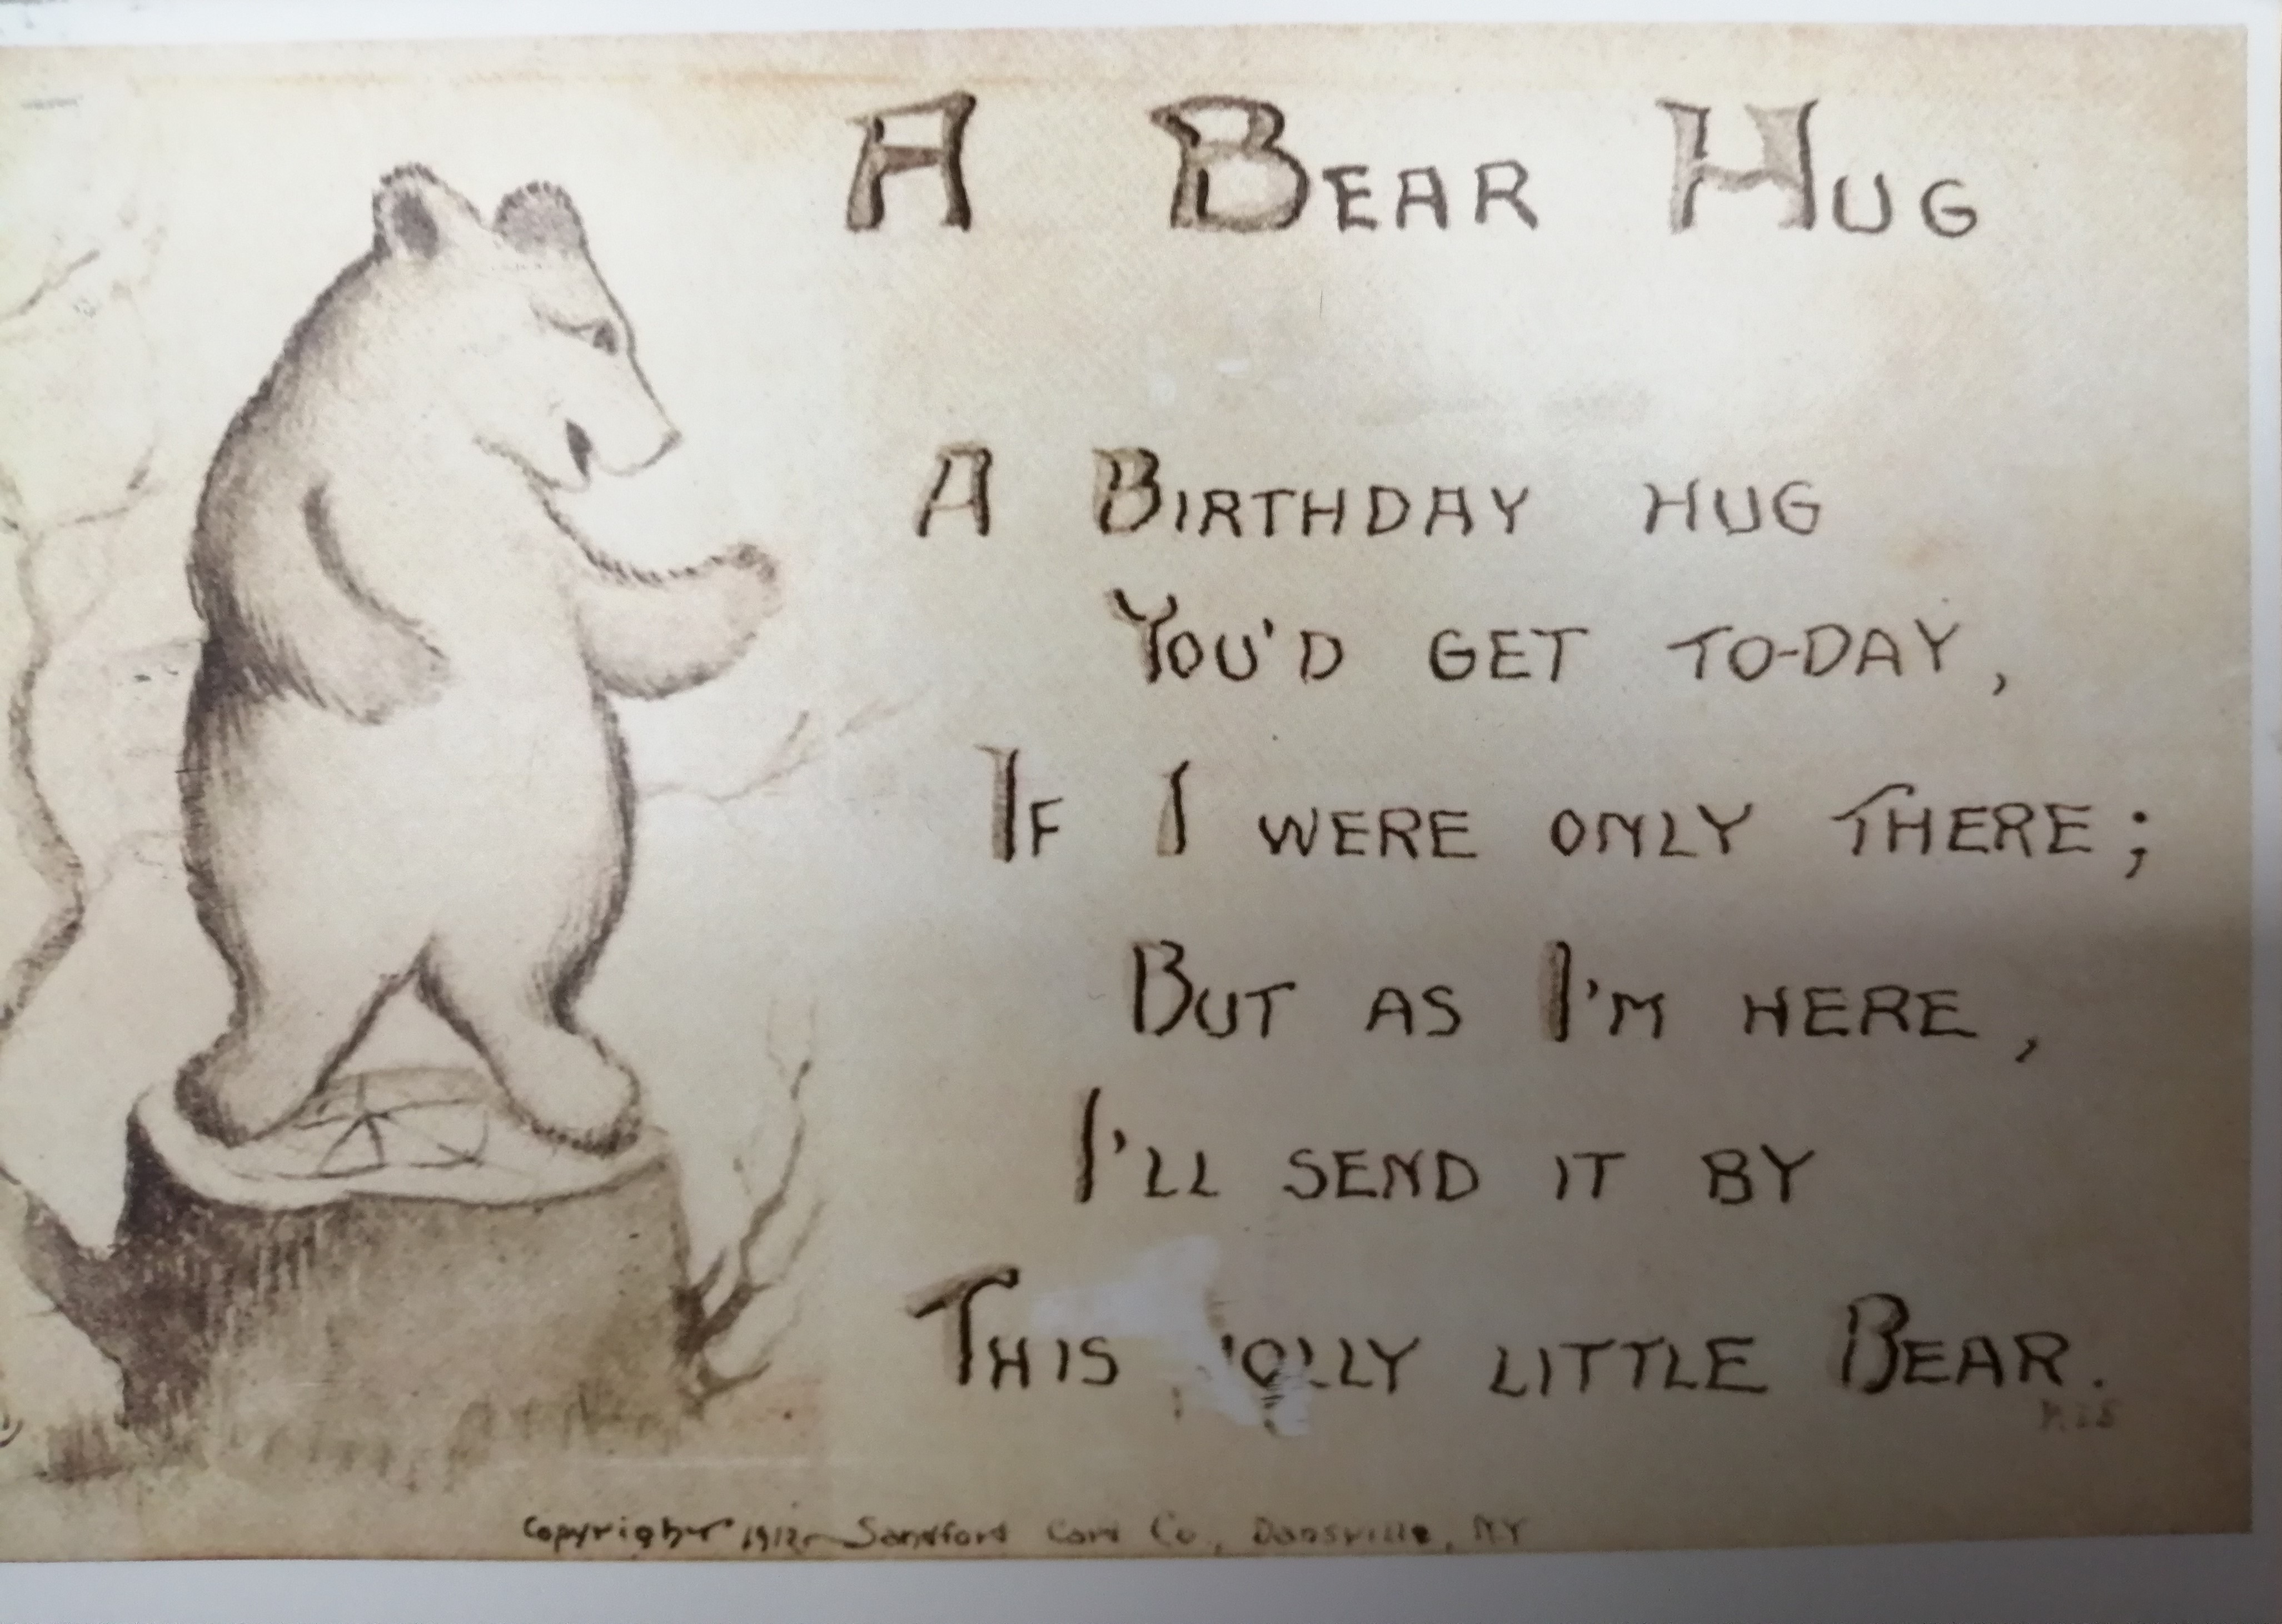 A BEAR HUG
A BIRTHDAY HUG
YOU'D GET TO-DAY,
IF I WERE ONLY THERE;
BUT AS I'M HERE,
I'LL SEND IT BY
THIS JOLLY LITTLE BEAR.
Copyright 1912 Sandford Card Co., Dansville, NY